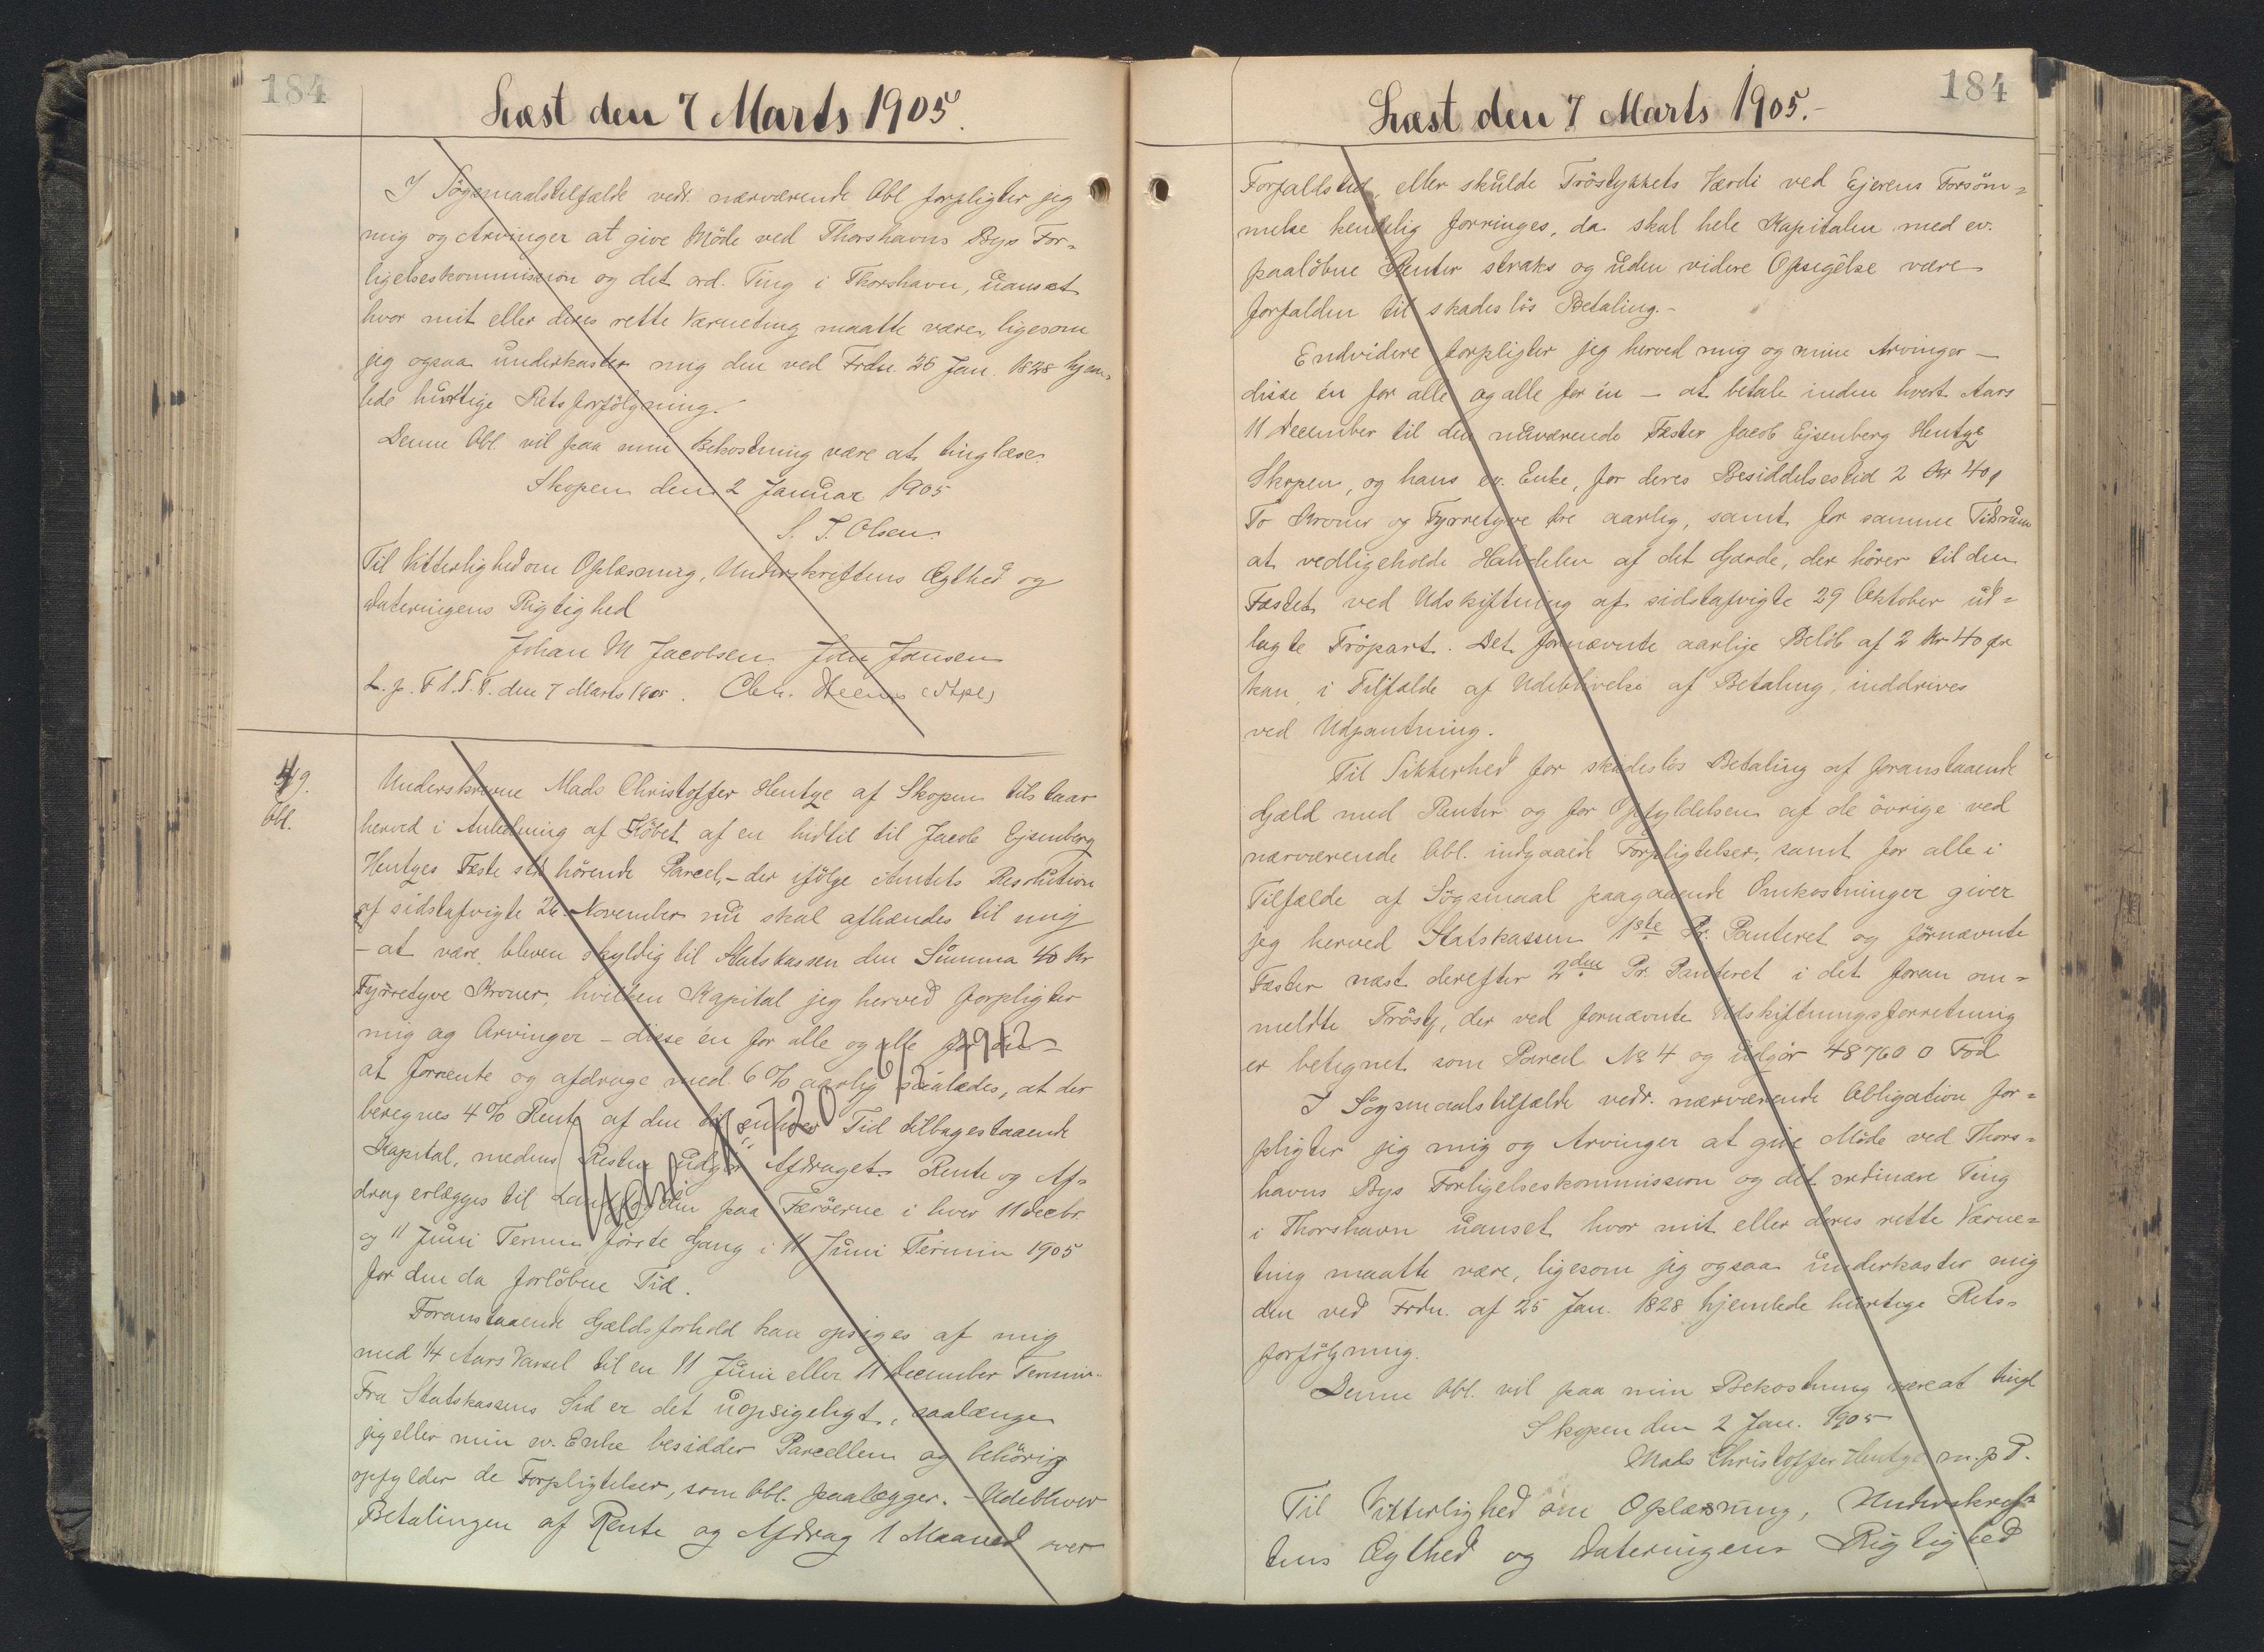 184
Læst den 7 Marts 1905.
I Søgsmaalstilfælde vedr. nærværende Obl forpligter jeg
mig og Arvinger at give Møde ved Thorshavns Bys For=
ligelseskommission og det ord. Ting i Thorshavn, uanset
hvor mit eller deres rette Værneting maatte være, ligesom
jeg ogsaa underkaster mig den ved Frdn. 25 Jan. 1828 hjem=
lede hurtige Retsforfølgning.
Denne Obl. vil paa min Bekostning være at tinglæse.
Skopen den 2 Januar 1905
S. J. Olsen.
Til Vitterlighed om Oplæsning, Underskriftens Ægthed og
Dateringens Rigtighed
Johan M Jacobsen Joen Joensen
L. p. F S. T. T. den 7 Marts 1905. Chr.
49.
Obl.
Underskrevne Mads Christoffer Hentze af Skopen tilstaar
herved i Anledning af Købet af en hidtil til Jacob Ejsenberg
Hentzes Fæste hørende Parcel, – der ifølge Amtets Resolution
af sidstafvigte 26. November nu skal afhændes til mig
– at være bleven skyldig til Statskassen den Summa 40 Kr
Fyrretyve Kroner, hvilken Kapital jeg herved forpligter
mig og Arvinger – disse én for alle og alle for én –
at forrente og afdrage med 6 % aarlig saaledes, at der
beregnes 4 % Rente af den til enhver Tid tilbagestaaende
Kapital, medens Resten udgør Afdraget. Rente og Af=
drag erlægges til paa Færøerne i hver 11 Decbr.
og 11 Juni Termin første Gang i 11 Juni Termin 1905
for den da forløbne Tid.
Foranstaaende Gældsforhold kan opsiges af mig
med 1/4 Aars Varsel til en 11 Juni eller 11 December Termin.
Fra Statskassens Sid er det uopsigeligt, saalænge
jeg eller min ev. Enke besidder Parcellen og behørig
opfylder de Forpligtelser, som Obl. paalægger. – Udebliver
Betalingen af Rente og Afdrag 1 Maaned over
184
Læst den 7 Marts 1905.–
Forfaldstid, eller skulde Trøstykkets Værdi ved Ejerens Forsøm=
melse kendelig forringes, da skal hele Kapitalen med ev.
paaløbne Renter straks og uden videre Opsigelse være
forfalden til skadesløs Betaling.–
Endvidere forpligter jeg herved mig og mine Arvinger –
disse én for alle og alle for én – at betale inden hvert Aars
11 December til den nuværende Fæster Jacob Ejsenberg Hentze
Skopen, og hans ev. Enke, for deres Besiddelsestid 2 Kr 40 Ø
To Kroner og Fyrretyve Øre aarlig, samt for samme Tidsrum
at vedligeholde Halvdelen af det Gærde, der hører til den
Fæstet ved Udskiftning af sidstafvigte 29 Oktober ud=
lagte Trøpart. Det fornævnte aarlige Beløb af 2 Kr 40 Ør
kan, i Tilfælde af Udeblivelse af Betaling, inddrives
ved Udpantning.
Til Sikkerhed for skadesløs Betaling af foranstaaende
Gæld med Renter og for Opfyldelsen af de øvrige ved
nærværende Obl. indgaaede Forpligtelser, samt for alle i
Tilfælde af Søgsmaal paagaaende Omkostninger giver
jeg herved Statskassen 1ste Pr. Panteret og fornævnte
Fæster næst derefter 2den Pr. Panteret i det foran om=
meldte Trøsty, der ved fornævnte Udskiftningsforretning
er betegnet som Parcel № 4 og udgør 48760 □ Fod
I Søgsmaalstilfælde vedr. nærværende Obligation for=
pligter jeg mig og Arvinger at give Møde ved Thors=
havns Bys Forligelseskommission og det ordinære Ting
i Thorshavn uanset hvor mit eller deres rette Værne=
ting maatte være, ligesom jeg ogsaa underkaster mig
den ved Frdn. af 25 Jan. 1828 hjemlede hurtige Rets=
forfølgning.
Denne Obl. vil paa min Bekostning være at tingl
Skopen den 2 Jan. 1905
Mads Christoffer Hentze m. p P.
Til Vitterlighed om Oplæsning, Underskrif=
tens Ægthed og Dateringens Rigtighed